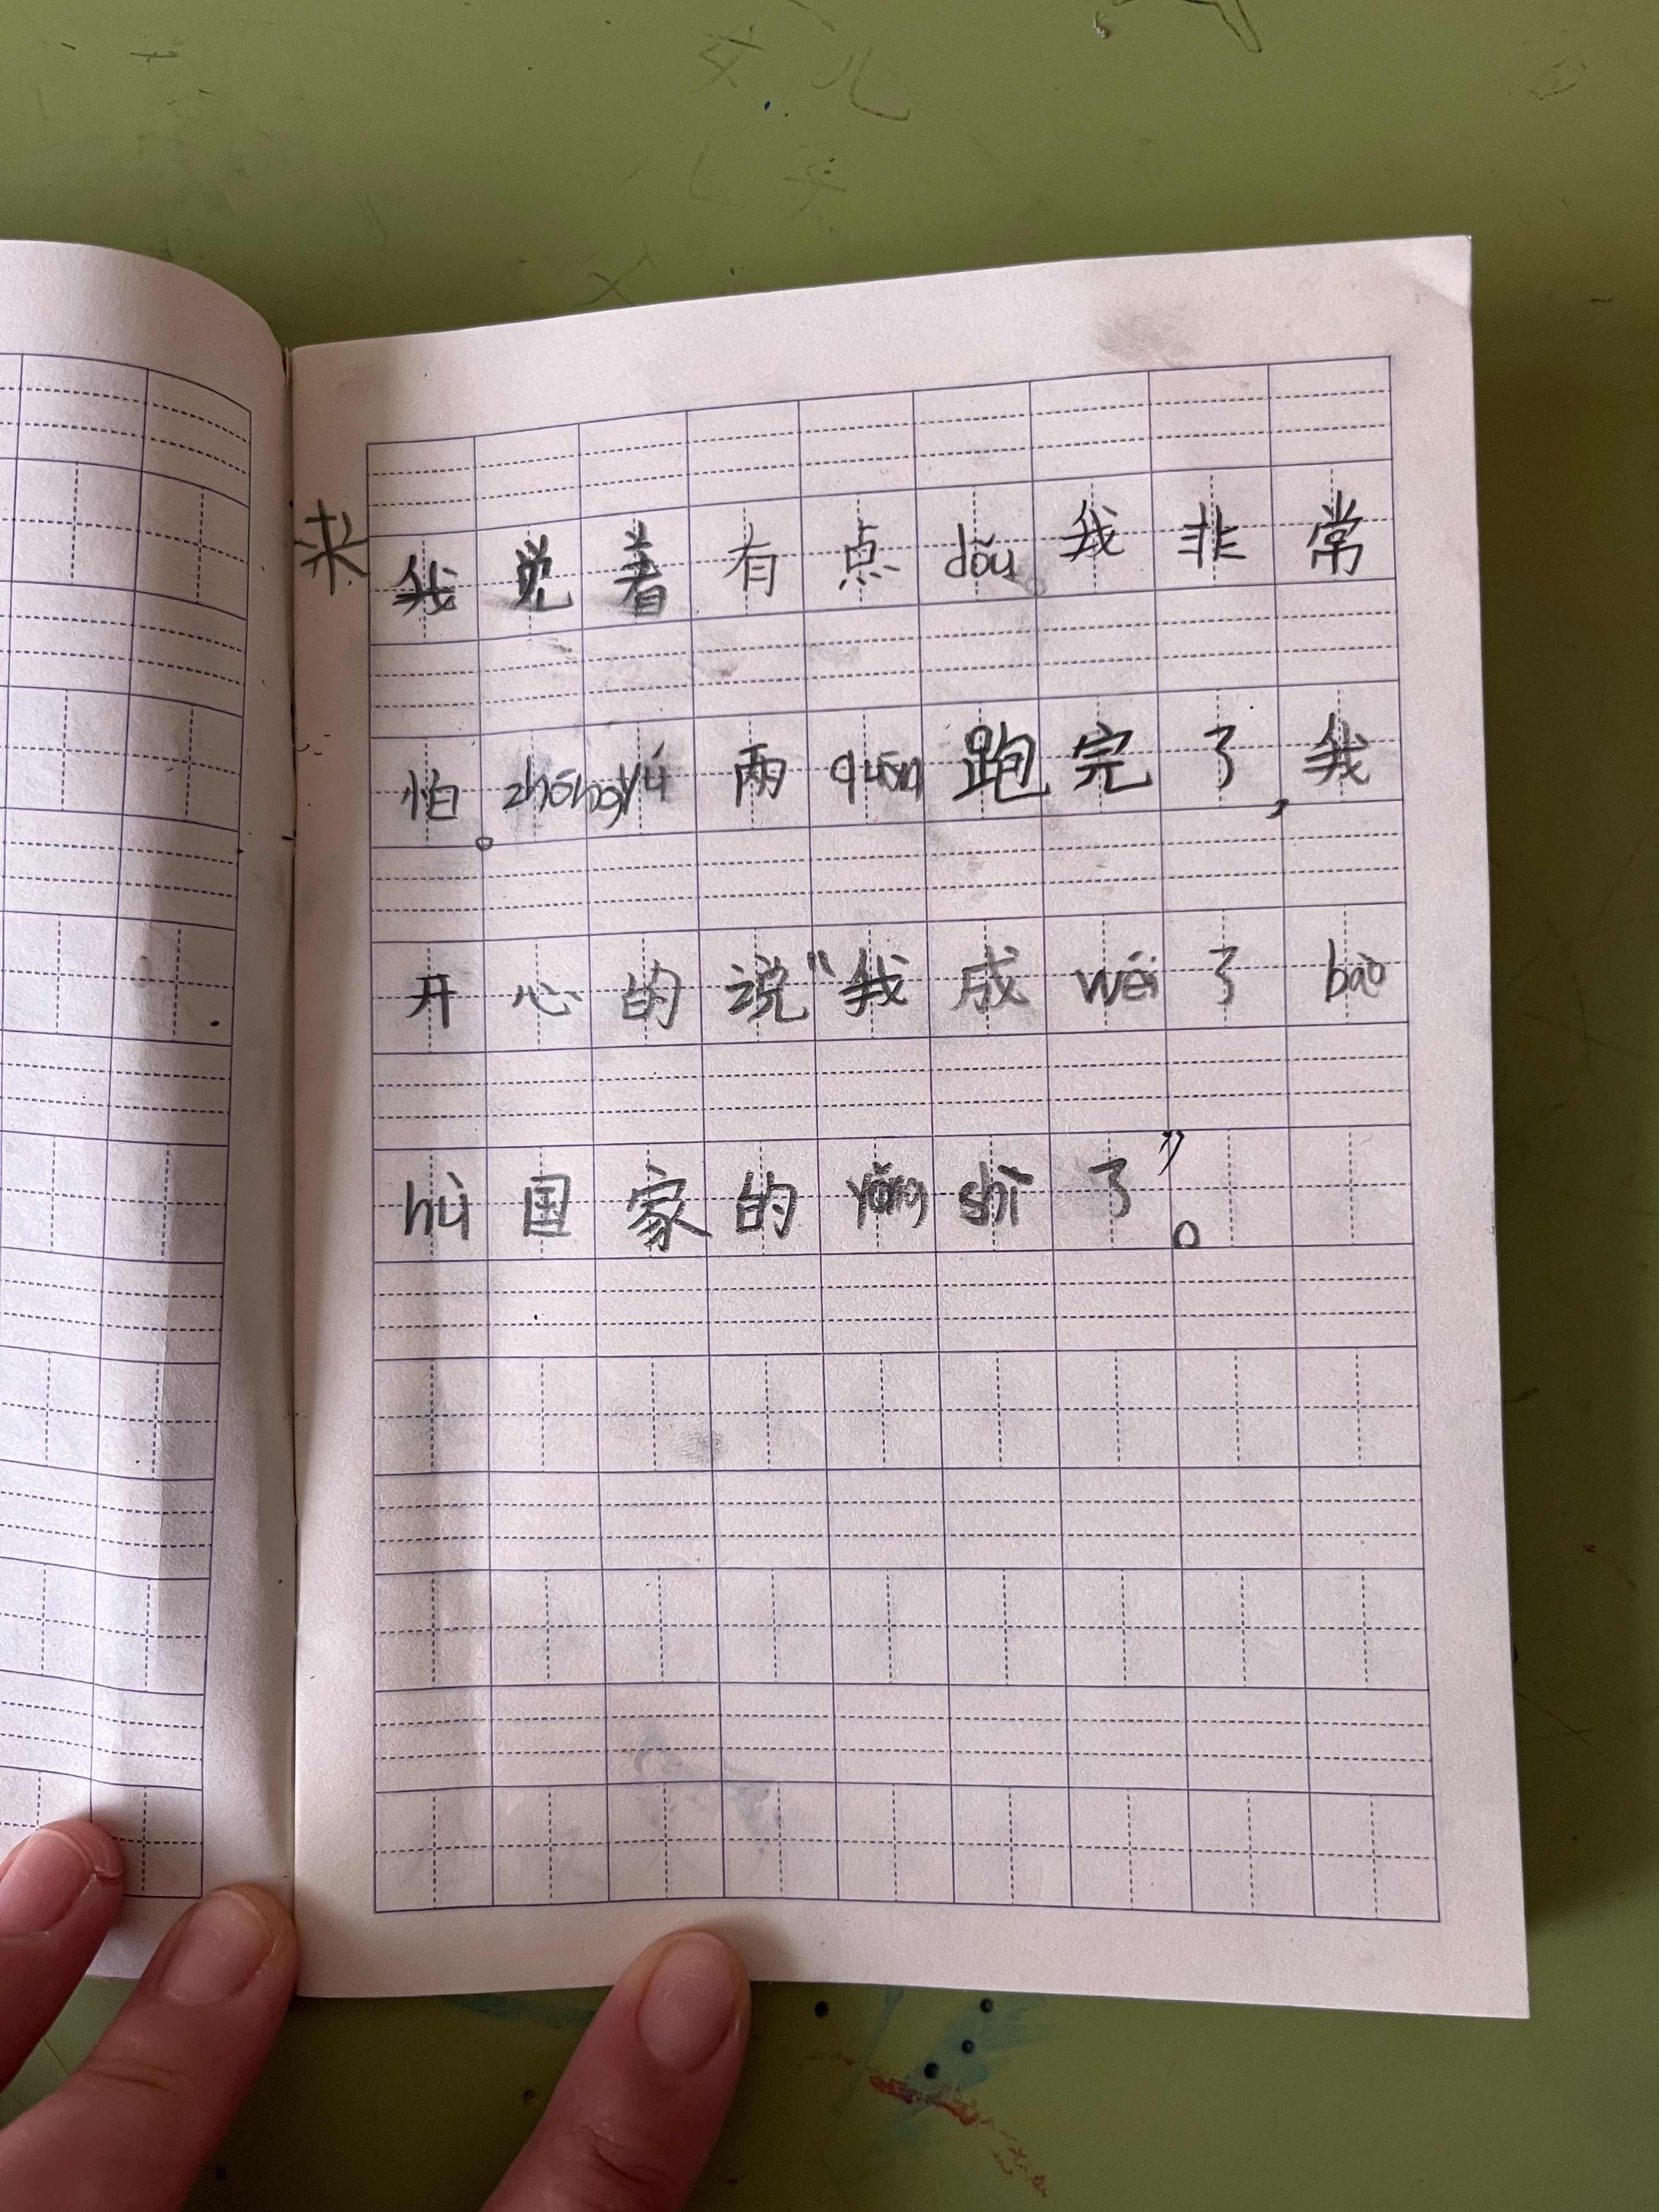 来我觉着有点dǒu。我非常
怕。zhōngyú两quān跑完了,我
开心的说“我成wéi了bǎo
hù国家的yǒng shì了”。